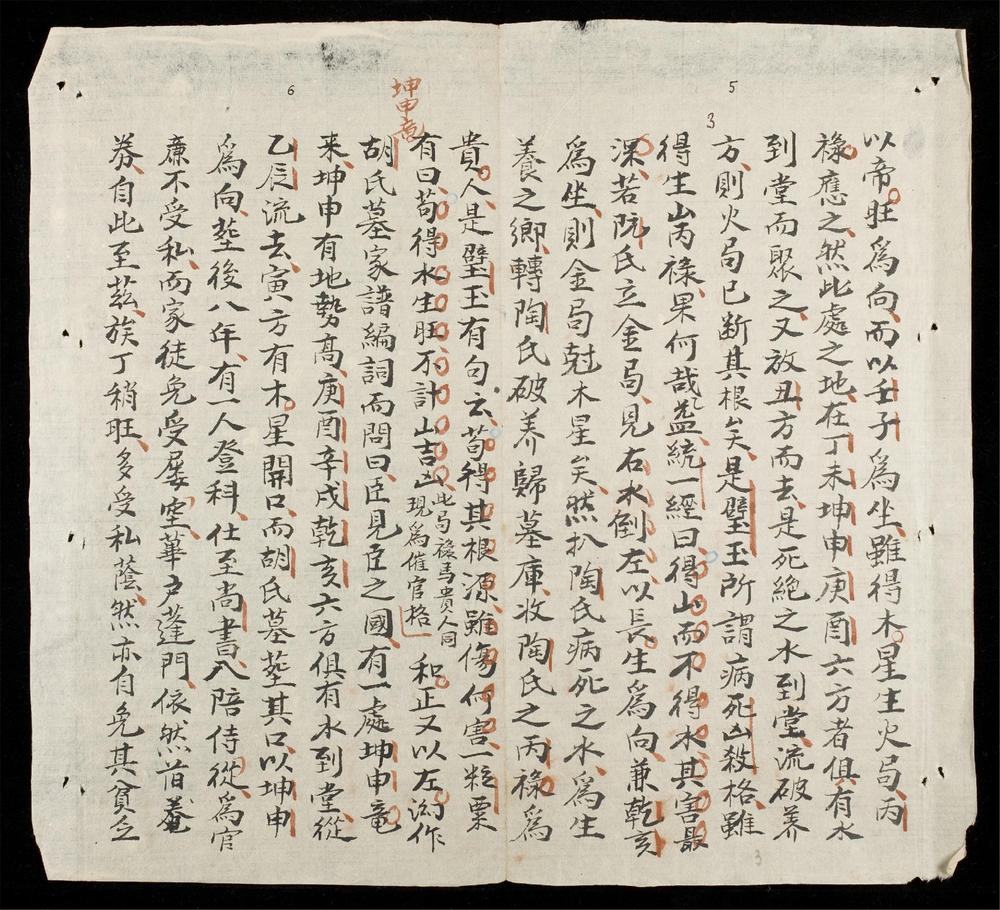 5
3
以帝旺爲向、而以壬子爲坐、雖得木星生火局、丙
祿應之、然此處之地、在丁未坤申庚酉六方者、俱有水
到堂而聚之、又放丑方而去、是死絶之水到堂、流破养
方、則火局已断其根矣、是璧玉所謂病死凶殺格、雖
得生山丙祿、果何哉、益統一經曰、得山而不得水、其害最
深、若阮氏立金局、見右水倒左、以長生爲向、兼乾亥
爲坐、則金局尅木星矣、然扒陶氏病死之水、爲生
養之鄉、轉陶氏破养歸墓庫、收陶氏之丙祿爲
6
貴人、是璧玉有句云、苟得其根源、雖傷何害、一粒粟
坤申竜
有曰、苟得水生旺、不計山吉凶、此局祿馬貴人同現爲催官格 和正又以左泑作
胡氏墓家譜編詞而問曰、臣見臣之國、有一處坤申竜
来、坤申有地勢高、庚酉辛戌乾亥六方俱有水到堂、從
乙辰流去、寅方有木星開口、而胡氏墓塟其口、以坤申
爲向、塟後八年、有一人登科、仕至尚書、入陪侍從、爲官
亷不受私、而家徒免受屡空、蓽户蓬門、依然昔
券、自此至茲、族丁稍旺、多受私蔭、然亦自免其貧乏
3